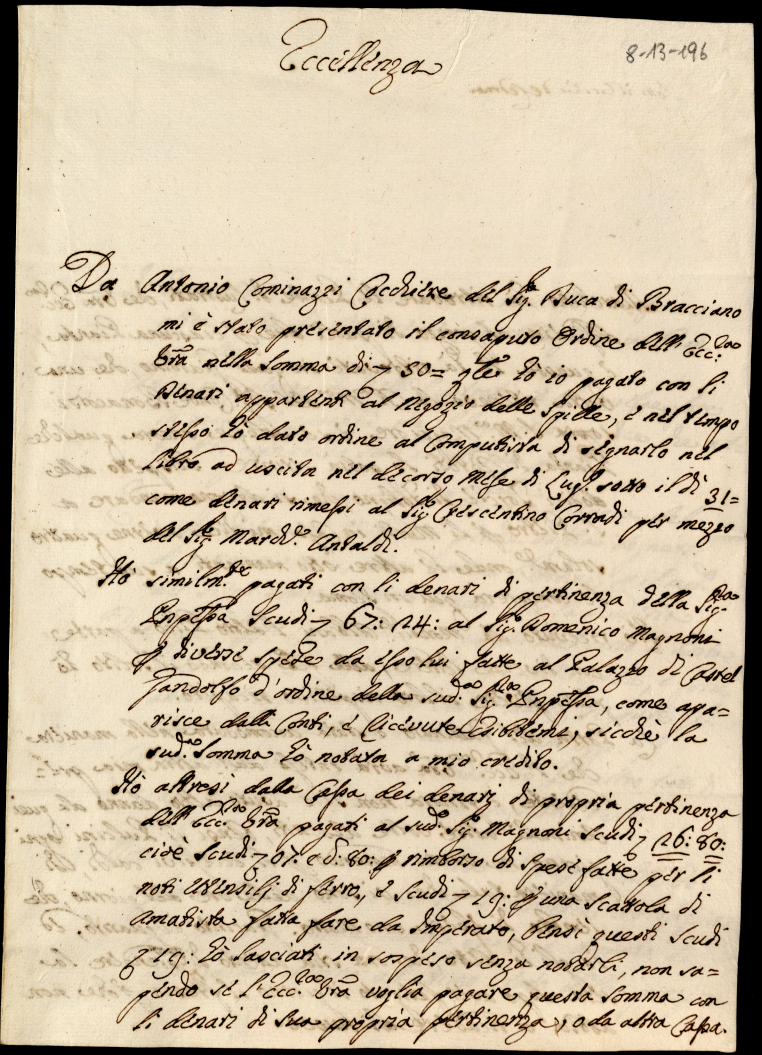 Eccellenza
8-13-196
Da Antonio Cominazzi Cocchiere del Sig. Duca di Bracciano
mi è stato presentato il consaputo Ordine dell' Ecc.
Vra nella somma di 30= ho io pagato con li
Denari appartenti al Negozio delle Spille, e nel tempo
stesso hò dato ordine al Computista di segnarlo nel
libro ad uscita nel decorso Mese di Lugl. sotto il dì 31=
come denari rimessi al Sig. Crescentino Corradi per mezzo
del Sig. March. Antaldi.
Hò similmte pagati con li denari di pertinenza della Sig.
Pnpessa Scudi 67: 24: al Sig. Domenico Magnoni
p diverse spese da esso lui fatte al Palazzo di Castel
Gandolfo d'ordine della sud. Sig. Pnpessa, come apa=
risce dalli Conti, e Ricevute esibitemi, sicchè la
sud. somma hò notata a mio credito.
Hò altresì dalla Cassa dei denarj di propria pertinenza
dell' Ecc. Vra pagati al sud. Sig. Magnoni Scudi 26: 80:
cioè Scudi 07: e d: 80: p rimborzo di spese fatte per li
noti Utensilj di ferro, e Scudi 19: p una Scattola di
Amatista fatta fare da Imperato, bensì questi Scudi
19: hò lasciati in sospeso senza notarli, non sa=
pendo se l' Ecc. Vra voglia pagare questa somma con
li denari di sua propria pertinenza, o da altra Cassa.